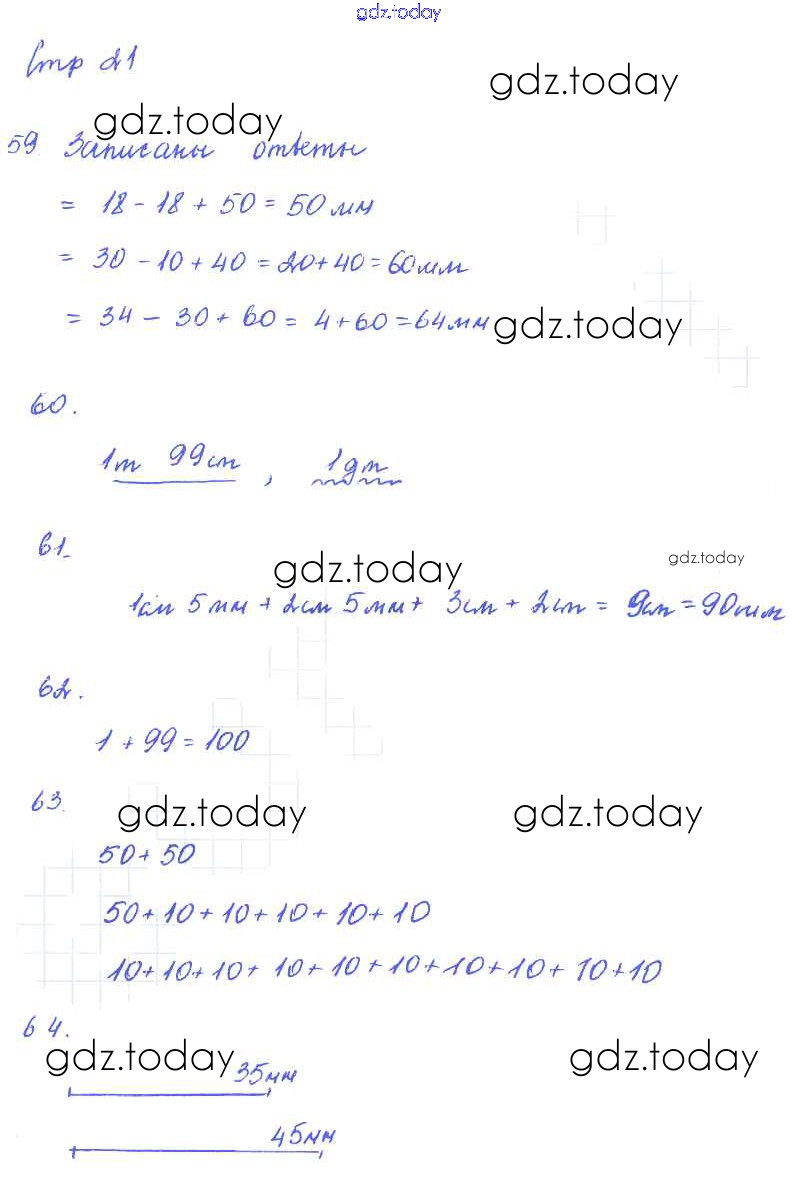 gdz.today
Стр 21
gdz.today
gdz.today
59. Записаны ответы
= 18 - 18 + 50 = 50 мм
= 30 - 10 + 40 = 20 + 40 = 60 мм
= 34 - 30 + 60 = 4 + 60 = 64 мм
gdz.today
60.
1м 99см , 1дм
61.
gdz.today
gdz.today
1см 5мм + 2см 5мм + 3см + 2см = 9см = 90мм
62.
1 + 99 = 100
63.
gdz.today
gdz.today
50 + 50
50 + 10 + 10 + 10 + 10 + 10
10 + 10 + 10 + 10 + 10 + 10 + 10 + 10 + 10 + 10
64.
gdz.today
gdz.today
35мм
45мм